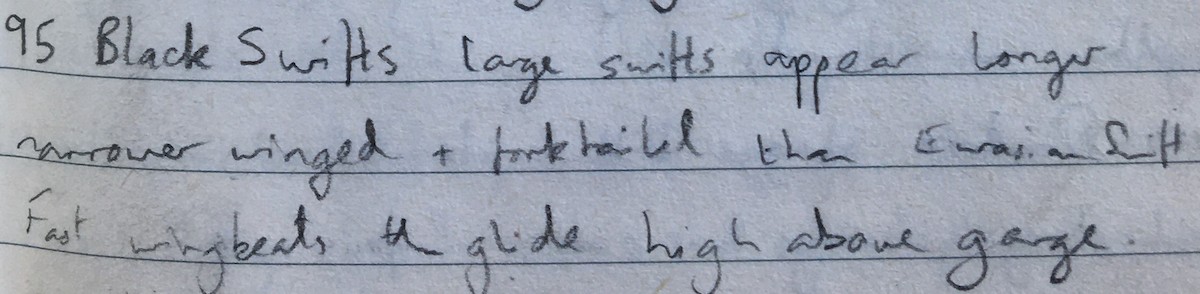 95 Black Swifts large swifts appear longer
narrower winged + forktailed than Eurasian Swift
Fast wingbeats th glide high above gorge.